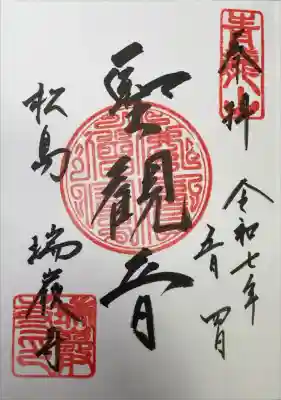 奉拝
令和七年
五月四日
聖観音
松島 瑞巌寺